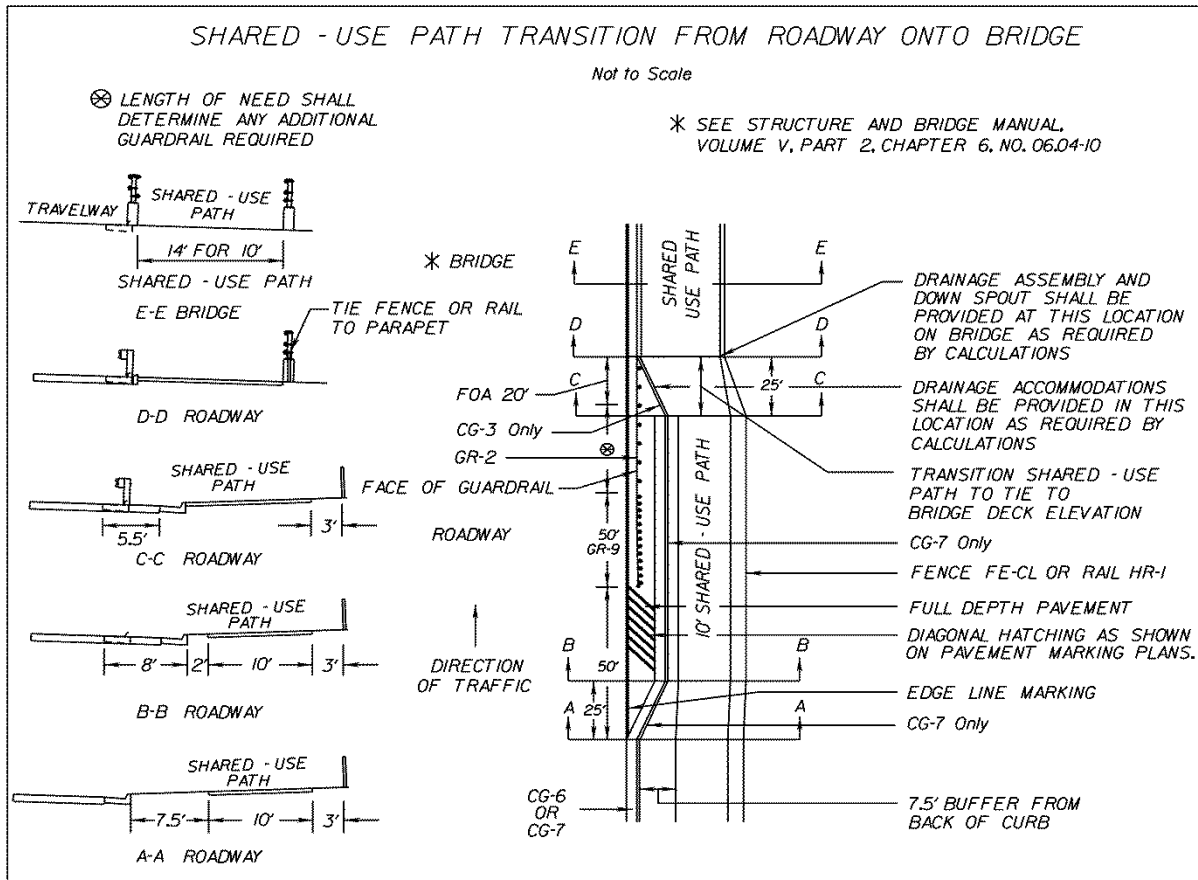 SHARED - USE PATH TRANSITION FROM ROADWAY ONTO BRIDGE
Not to Scale
⊗ LENGTH OF NEED SHALL
DETERMINE ANY ADDITIONAL
GUARDRAIL REQUIRED
* SEE STRUCTURE AND BRIDGE MANUAL,
VOLUME V, PART 2, CHAPTER 6, NO. 06.04-10
TRAVELWAY
SHARED - USE
PATH
14' FOR 10'
SHARED - USE PATH
E-E BRIDGE
TIE FENCE OR RAIL
TO PARAPET
D-D ROADWAY
SHARED - USE
PATH
5.5'
3'
C-C ROADWAY
SHARED - USE
PATH
8'
2'
10'
3'
B-B ROADWAY
SHARED - USE
PATH
7.5'
10'
3'
A-A ROADWAY
* BRIDGE
E
E
SHARED
USE PATH
D
D
C
C
25'
FOA 20'
CG-3 Only
⊗
GR-2
FACE OF GUARDRAIL
ROADWAY
50'
GR-9
10' SHARED - USE PATH
50'
DIRECTION
OF TRAFFIC
B
B
25'
A
A
CG-6
OR
CG-7
DRAINAGE ASSEMBLY AND
DOWN SPOUT SHALL BE
PROVIDED AT THIS LOCATION
ON BRIDGE AS REQUIRED
BY CALCULATIONS
DRAINAGE ACCOMMODATIONS
SHALL BE PROVIDED IN THIS
LOCATION AS REQUIRED BY
CALCULATIONS
TRANSITION SHARED - USE
PATH TO TIE TO
BRIDGE DECK ELEVATION
CG-7 Only
FENCE FE-CL OR RAIL HR-1
FULL DEPTH PAVEMENT
DIAGONAL HATCHING AS SHOWN
ON PAVEMENT MARKING PLANS.
EDGE LINE MARKING
CG-7 Only
7.5' BUFFER FROM
BACK OF CURB